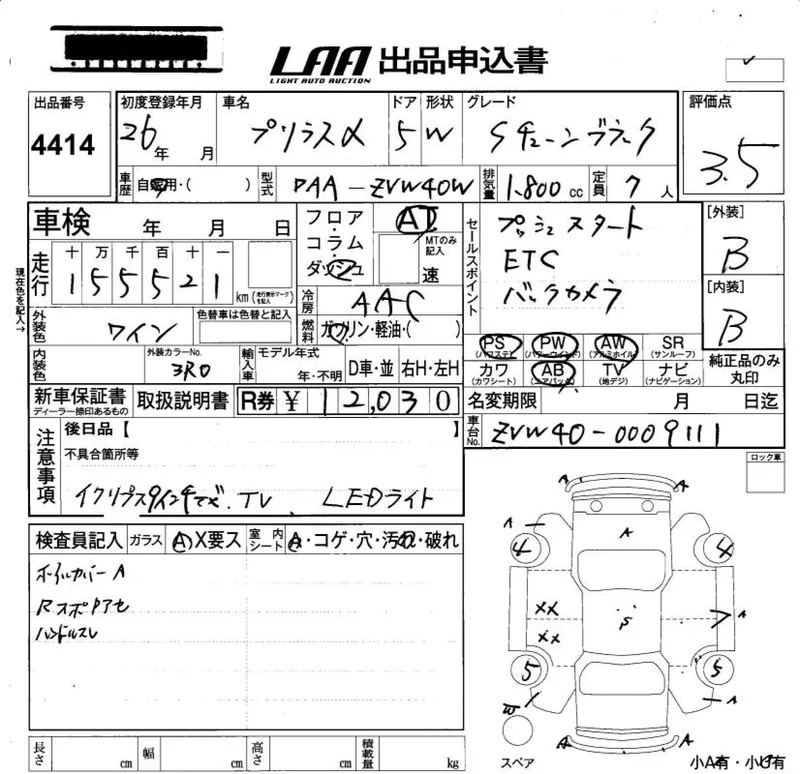 LAA 出品申込書
LIGHT AUTO AUCTION
出品番号 4414
初度登録年月 26年 月
車名 プリウスα
ドア 5
形状 W
グレード Sチューンブラック
評価点 3.5
車歴 自家用・( )
型式 DAA-ZVW40W
排気量 1.800cc
定員 7人
車検 年 月 日
フロア・コラム・ダッシュ
AT
MTのみ記入
速
セールスポイント
プッシュスタート
ETC
バックカメラ
[外装] B
[内装] B
現在色を記入→
走行 十 万 千 百 十 一
155521 km (走行表示マークを記入)
冷房 AAC
燃料 ガソリン・軽油・( )
外装色 ワイン
色替車は色替と記入
内装色
外装カラーNo. 3R0
輸入車
モデル年式 年・不明
D車・並 右H・左H
PS (パワステ) PW (パワーウインド) AW (アルミホイル) SR (サンルーフ)
カワ (カワシート) AB (エアバック) TV (地デジ) ナビ (ナビゲーション)
純正品のみ丸印
新車保証書 ディーラー捺印あるもの
取扱説明書
R券 ¥ 12,030
名変期限 月 日迄
車台No. ZVW40-0009111
注意事項
後日品【 】
不具合箇所等
TV LEDライト
ロック車
検査員記入
ガラス A・X要ス
室内シート A・コゲ・穴・汚れ・破れ
ホイルカバーA
RスポPアセ
ハンドルスレ
A A A
A A
4 4
XX A
XX P
5 5
A
A A
スペア
小A有・小P有
長さ cm 幅 cm 高さ cm 積載量 kg